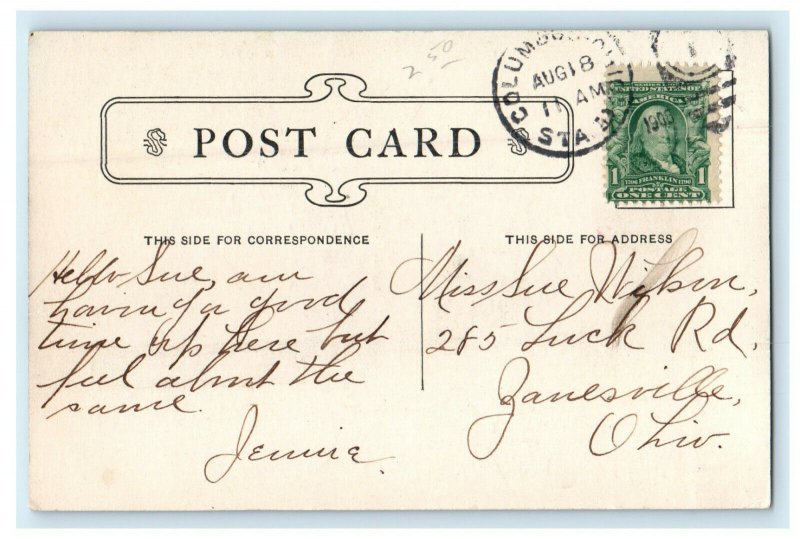 2.50
COLUMBUS, OHIO
AUG 18
11 AM
STA. B.
1908
UNITED STATES OF
AMERICA
1 1
1706 FRANKLIN 1790
POSTAGE
ONE CENT
POST CARD
THIS SIDE FOR CORRESPONDENCE
THIS SIDE FOR ADDRESS
Hello Sue, am
having a good
time up here but
feel about the
same.
Jennie.
Miss Sue Wilson,
285 Luck Rd.
Zanesville,
Ohio.